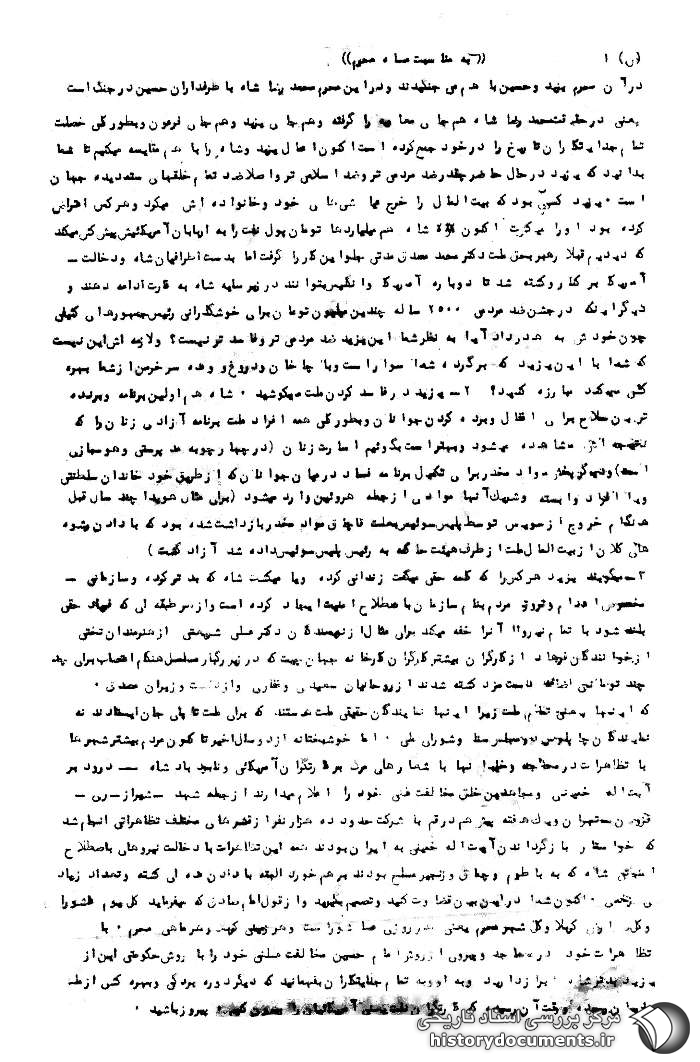 (ن) ۱ ((به مناسبت ماه محرم))
درآن محرم یزید وحسین با هم می جنگیدند ودراین محرم محمد رضا شاه با طرفداران حسین درجنگ است
یعنی درحقیقت محمد رضا شاه هم جای معاویه را گرفته وهم جای یزید وهم جای فرعون وبطورکلی خصلت
تمام جنایتکاران تاریخ را درخود جمع کرده است اکنون اعمال یزید وشاه را با هم مقایسه میکنیم تا شما
بدانید که یزید درحال حاضر چقدر ضد مردمی تر وضد اسلامی تر واصلا ضد تمام خلقهای ستمدیده جهان
است یزید کسی بود که بیت المال را خرج عیاشی های خود وخانواده اش میکرد وهرکس اعتراض
کرده بود اورا میگرفت اکنون شاه هم میلیاردها تومان پول نفت را به اربابان آمریکائیش پیش کش میکند
که دیدیم قبلا رهبر بحق ملت دکتر محمد مصدق مدتی جلو این کار را گرفت اما بدست اطرافیان شاه ودخالت -
آمریکا بر کنار وکشته شد تا دوباره آمریکا وانگلیس بتوانند در زیر سایه شاه به غارت ادامه دهند و
دیگر اینکه درجشن ضد مردمی ۲۵۰۰ ساله چندین میلیون تومان برای خوشگذرانی رئیس جمهورهای کثیفی
چون خودش به هدر داد آیا به نظر شما این یزید ضد مردمی تر وفاسد تر نیست؟ ولازمه اش این نیست
که شما با این یزید که برگرده شما سوار است وبا چاخان ودروغ و وعده سرخرمن از شما بهره
کشی میکند مبارزه کنید؟ ۲ - یزید در فاسد کردن ملت میکوشید شاه هم اولین برنامه وبرنده
ترین سلاح برای اغفال وبرده کردن جوانان وبطورکلی همه افراد ملت برنامه آزادی زنان را که
نتیجه اش مشاهده میشود وبهتر است بگوئیم اسارت زنان (درچهارچوبه مد پرستی وهوسبازی
است) ودیگر پخش مواد مخدر برای تکمیل برنامه فساد درمیان جوانان که از طریق خود خاندان سلطنتی
ویا افراد وابسته وشریک آنها موادی از جمله هروئین وارد میشود (برای مثال هویدا چند سال قبل
هنگام خروج از سویس توسط پلیس سوئیس بعلت قاچاق مواد مخدر بازداشت شده بود که با دادن رشوه
های کلان از بیت المال ملت از طرف هیئت حاکمه به رئیس پلیس سوئیس داده شد آزاد گشت)
۳ - میگویند یزید هرکس را که کلمه حق میگفت زندانی کرده ویا میکشت شاه که بدتر کرده وسازمانی -
مخصوص اعدام وترور مردم بنام سازمان باصطلاح امنیت ایجاد کرده است واز هر طبقه ای که فریاد حقی
بلند شود با تمام نیرو آنرا خفه میکند برای مثال از نویسندگان دکتر علی شریعتی از هنرمندان تختی
از خوانندگان فرهاد از کارگران بیشتر کارگران کارخانه جهان چیت که در زیر رگبار مسلسل هنگام اعتصاب برای چند
چند تومانی اضافه دست مزد کشته شدند از روحانیان سعیدی وغفاری واز دولت وزیران مصدق
که اینها یعنی تمام ملت زیرا اینها نمایندگان حقیقی ملت هستند که برای ملت تا پای جان ایستادند نه
نمایندگان چاپلوس مجلس سنا وشورای ملی اما خوشبختانه از دو سال اخیر تا کنون مردم بیشتر شهرها
با تظاهرات در مساجد وخیابانها با شعارهای مرگ بر غارتگران آمریکائی ونابود باد شاه — درود بر
آیت اله خمینی ومجاهدین خلق مخالفت علنی خود را اعلام میدارند از جمله مشهد - شیراز - ری -
قزوین - تهران ویک هفته پیش هم درقم با شرکت حدود ده هزار نفر از قشرهای مختلف تظاهراتی انجام شد
که خواستار بازگرداندن آیت اله خمینی به ایران بودند همه این تظاهرات با دخالت نیروهای باصطلاح
امنیتی شاه که به باطوم وچماق وزنجیر مسلح بودند برهم خورد البته با دادن عده ای کشته وتعداد زیاد
ی زخمی اکنون شما دراین بین قضاوت کنید وتصمیم بگیرید واز قول امام صادق که میفرماید کل یوم عاشورا
وکل ارض کربلا وکل شهر محرم یعنی هر روزی عاشورا است وهر زمینی کربلا وهر ماهی محرم با
تظاهرات خود در مساجد وپیروی از روش امام حسین مخالفت علنی خود را با روش حکومتی این از
یزید بدتر ابراز دارید وبه او وبه تمام جنایتکاران بفهمانید که دیگر دوره بردگی وبهره کشی از ملت
پیروز باشید
مرکز بررسی اسناد تاریخی
historydocuments.ir